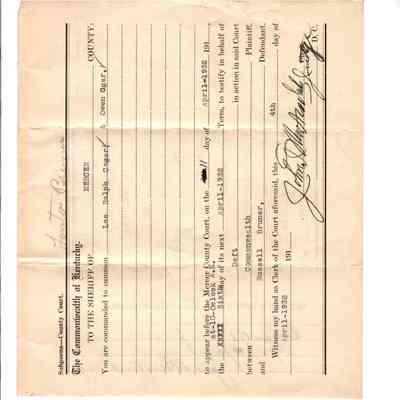 Subpoena—County Court.
The Commonwealth of Kentucky,
TO THE SHERIFF OF MERCER COUNTY:
You are commanded to summon Lee Ralph & Owen
to appear before the Mercer County Court, on the 11 day of April-1932 191
at-10-Oclock A.M.
the day of its next April-1932 Term, to testify in behalf of
Deft in action in said Court
between Commonwealth Plaintiff,
and Russell Bruner, Defendant.
Witness my hand as Clerk of the Court aforesaid, this 4th day of
April-1932 191
D. C.